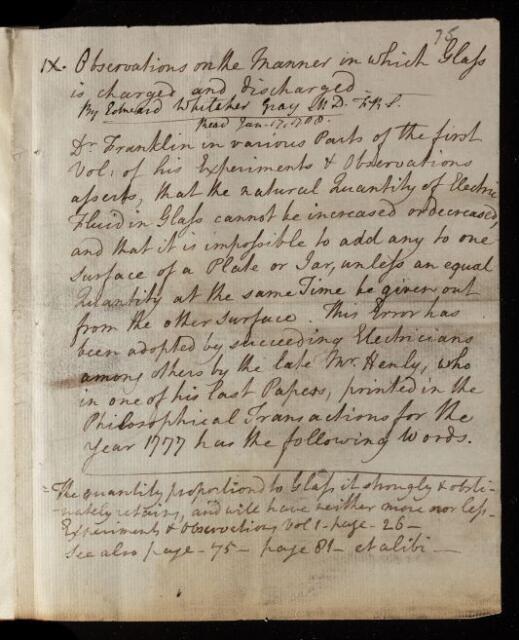 75
IX. Observations on the Manner in which Glass
is charged and discharged.
By Edward Whitaker Gray M.D. F.R.S.
Read Jan. 17, 1788.
Dr. Franklin in various Parts of the first
Vol: of his Experiments & Observations
asserts, that the natural Quantity of Electric
Fluid in Glass cannot be increased or decreased,
and that it is impossible to add any to one
surface of a Plate or Jar, unless an equal
Quantity at the same Time be given out
from the other surface. This Error has
been adopted by succeeding Electricians
among others by the late Mr. Henly, who
in one of his last Papers, printed in the
Philosophical Transactions for the
Year 1777 has the following Words.
The quantity proportiond to Glass it strongly & obsti-
-nately retains, and will have neither more nor less-
Experiments & Observations Vol 1 - page - 26 -
See also page - 75 - page 81 - et alibi -